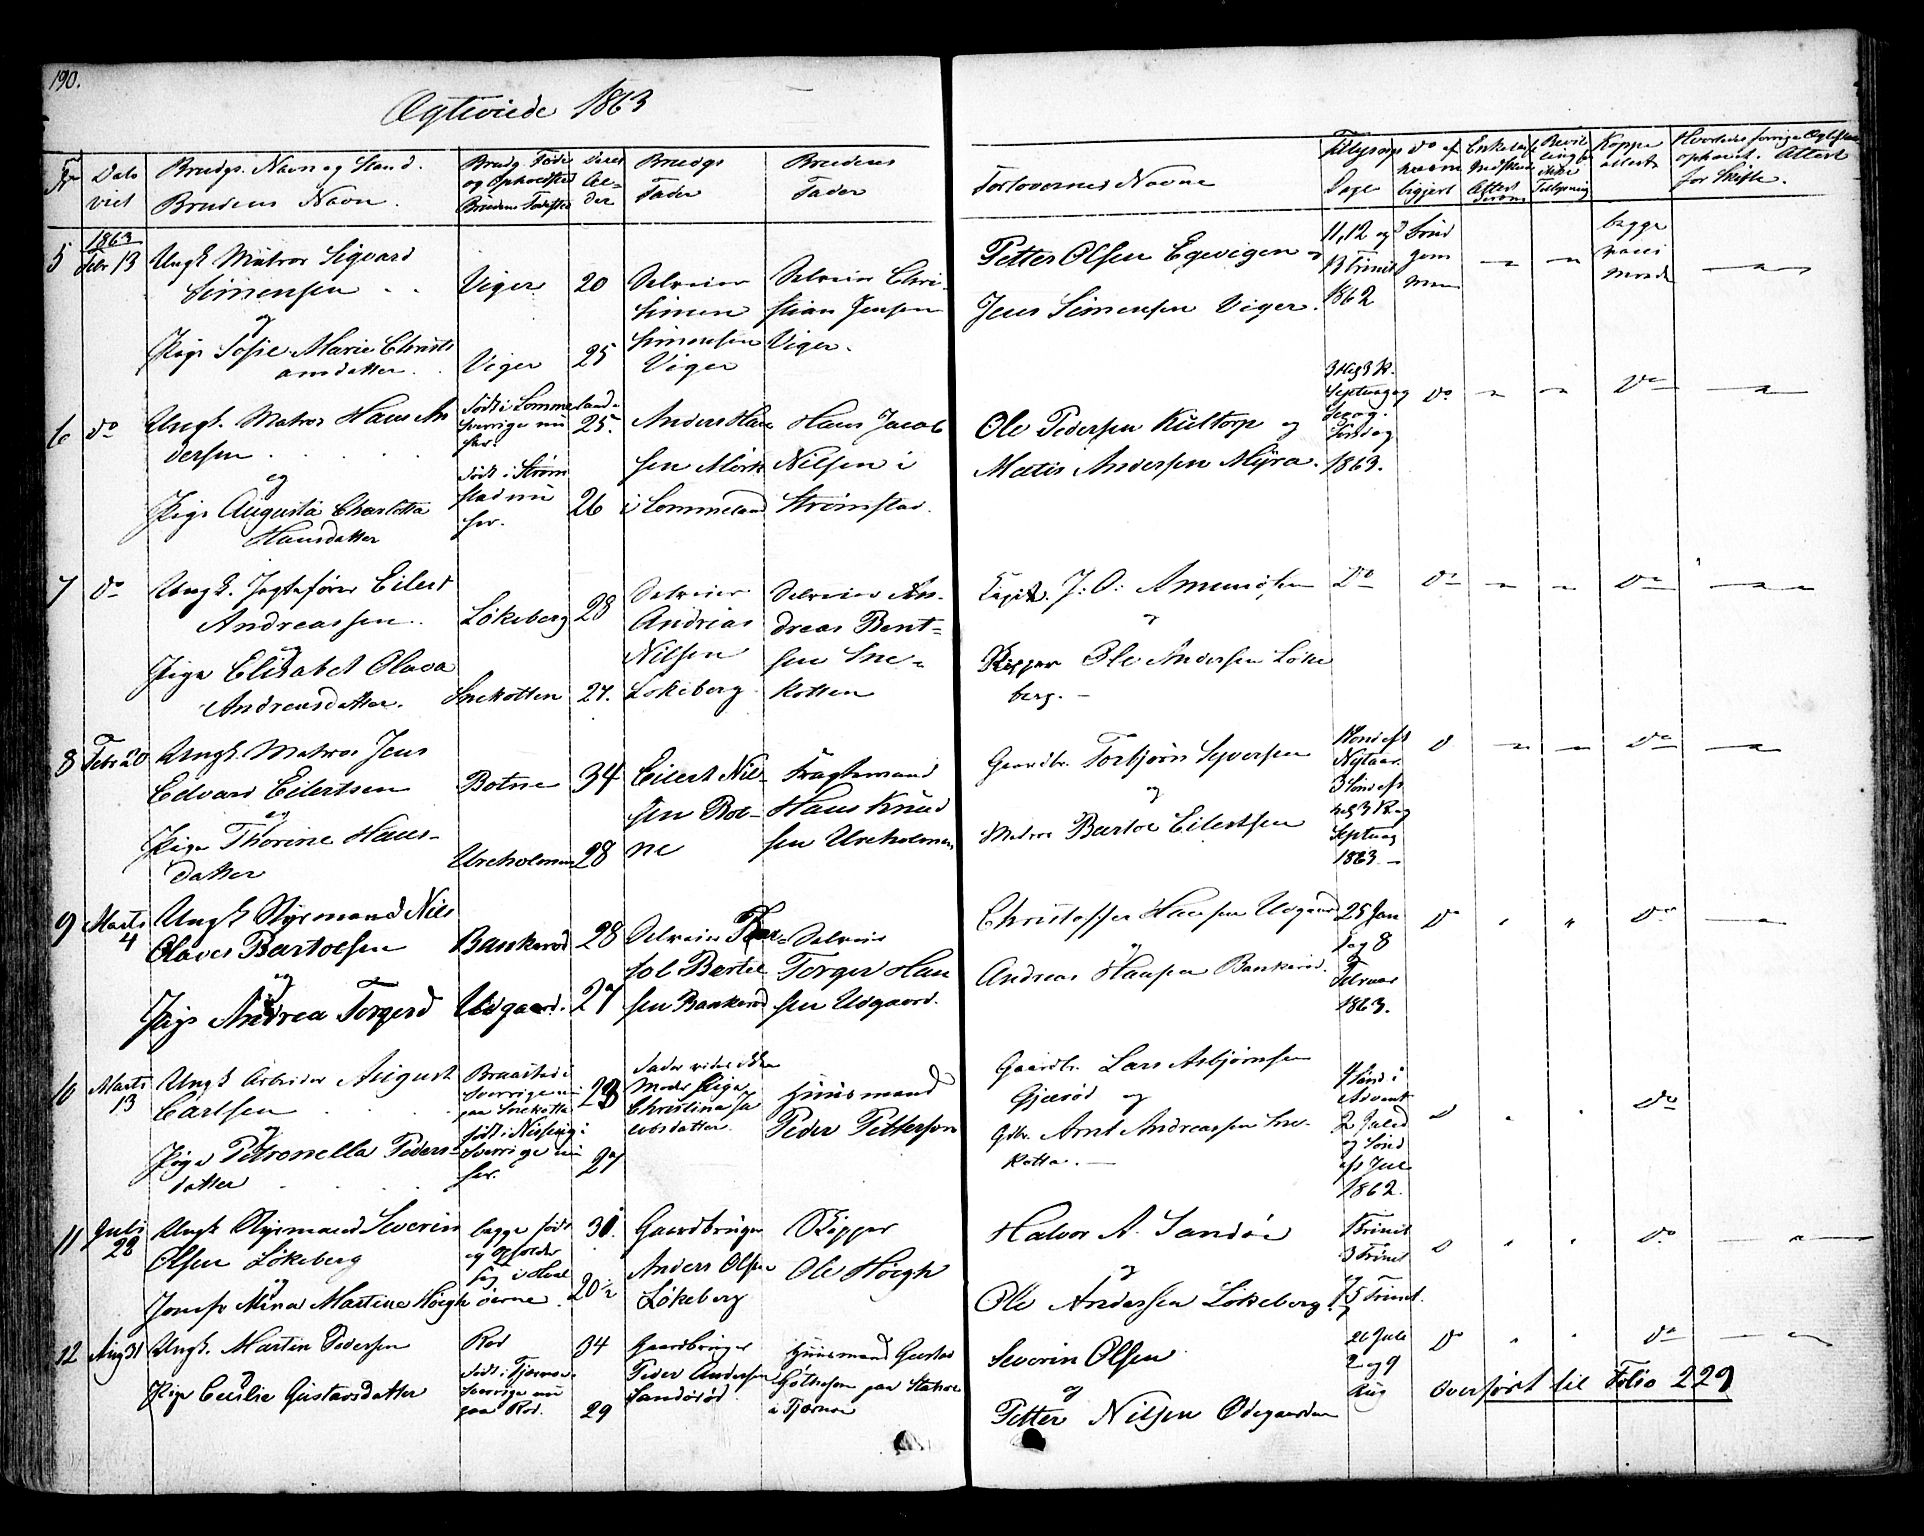 190.
Ægteviede 1863
No Dato viet
Brudgs. Navn og Stand.
Brudens Navn.
Brudg. Føde og Opholdsted
Brudens Fødested
Deres Alder
Brudgs Fader
Brudens Fader
Forlovernes Navne
Tillysnings Dage
do af hvem begjert
Kopper attest
Hvorledes forrige Ægteskab ophævet. Attest for Skifte.
5 1863 Febr 13
Ungk Matros Sigvard
Simensen
og
Pige Sofie Marie Christi
ansdatter
Viger 20
Viger 25
Selveier
Simen
Simensen
Viger
Selveier Chri
stian Jensen
Viger.
Petter Olsen Egevigen og
Jens Simensen Viger.
11, 12 og
13 Trinit
1862
Brud
gom
men
begge
havi
6 do
Ungk. Matros Hans An
dersen
og
Pige Augusta Charlotta
Hansdatter
Født i Lommeland
Sverrige nu
her.
25.
Født i Strøm
stad nu
her.
26
Anders Han
sen Mörk
i Lommeland
Hans Jacob
Nilsen i
Strömstad.
Ole Pedersen Kultorp og
Matis Andersen Myra.
3 H 3 K.
Septuag
Sexag.
1863.
do do
7 do
Ungk. Jagtefører Eilert
Andreassen.
og
Pige Elisabet Olava
Andreasdatter.
Løkeberg 28
Snekotten 27.
Selveier
Andreas
Nilsen
Lökeberg
Selveier An
dreas Bent-
sen Sne-
kotten
J. O. Amundsen
og
Skipper Ole Andersen Løke
berg.
Do do do
8 Febr 20
Ungk. Matros Jens
Edvard Eilertsen
og
Pige Thorine Hans-
datter
Botne 34
Ureholmen 28
Eilert Nil-
sen Bot-
ne
Fragtemand
Hans Knud
sen Ureholmen
Gaardbr. Torbjørn Syversen
og
Matros Bartol Eilertsen
Nytaar.
Septuag
1863.
do do
9 Marts 4
Ungk Styrmand Nils
Olaves Bartolsen
og
Pige Andrea Torgersd
Bankerød 28
Udgaard. 27
Selveier
Bertel
sen Bankerød
Selveier
Torger Han
sen Udgaard.
Christoffer Hansen Udgaard
og
Andreas Hansen Bankerød.
25 Jan
1 og 8
Februar
1863.
do do
10 Marts 13
Ungk Arbeider August
Carlsen
og
Pige Petronella Peders-
datter
Sverrige nu
paa Snekotte
28
Sverrige nu
her.
27
Moder Pige
Christina Ja
cobsdatter
Huusmand
Peder Petterson
Gaardbr. Lars Asbjørnsen
Gjærød og
Gdbr. Arnt Andreassen Sne-
kotta.
4 Sönd i
Advent
2 Juled
og Sönd
eft Jul
1862.
do do
11 Juli 28
Ungk Styrmand Severin
Olsen Lökeberg
og
Jomfr Mina Martine Höegh
begge født
og opholder
sig i Hval
öerne
30.
20½
Gaardbruger
Anders Olsen
Løkeberg
Skipper
Ole Höegh
Halvor A. Sandöe
og
Ole Andersen Lökeberg.
1 Trinit
3 Trinit
5 Trinit.
do do
12 Aug 31
Ungk. Martin Pedersen
og
Pige Cecilie Gustavsdatter
Rød 34
født i Tjærnøe
Sverrige nu
paa Rød.
29
Gaardbruger
Peder Andersen
Sandørød
Huusmand Gustav
i Tjærnöe
Severin Olsen
og
Petter Nilsen Ødegaarden
26 Juli
2 og 9
Aug
do do
Overført til Folio 229